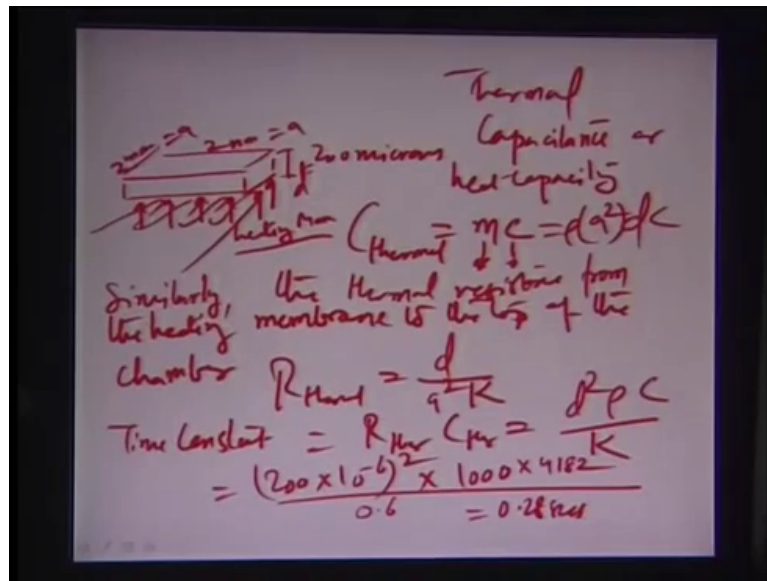 Thermal
Capacitance or
heat-capacity
2mm = a
2mm = a
d 200 microns
heating Mem
C_thermal = mc = ρ(a²)dC
Similarly, the thermal resistance from
the heating membrane to the top of the
chamber
R_thermal = d / a²K
Time Constant = R_ther C_ther = d²ρC / K
= (200×10⁻⁶)² × 1000×4182 / 0.6 = 0.28 secs